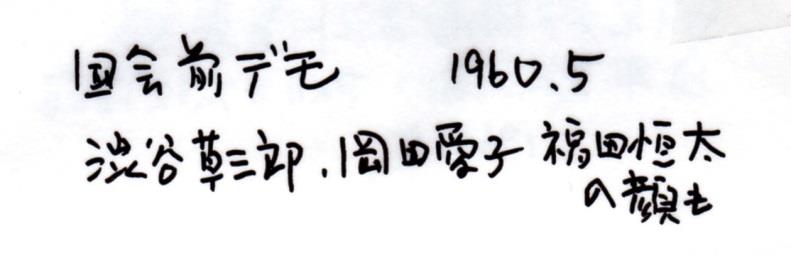 国会前デモ 1960.5
渋谷草三郎、岡田愛子 福田恒太
の顔も